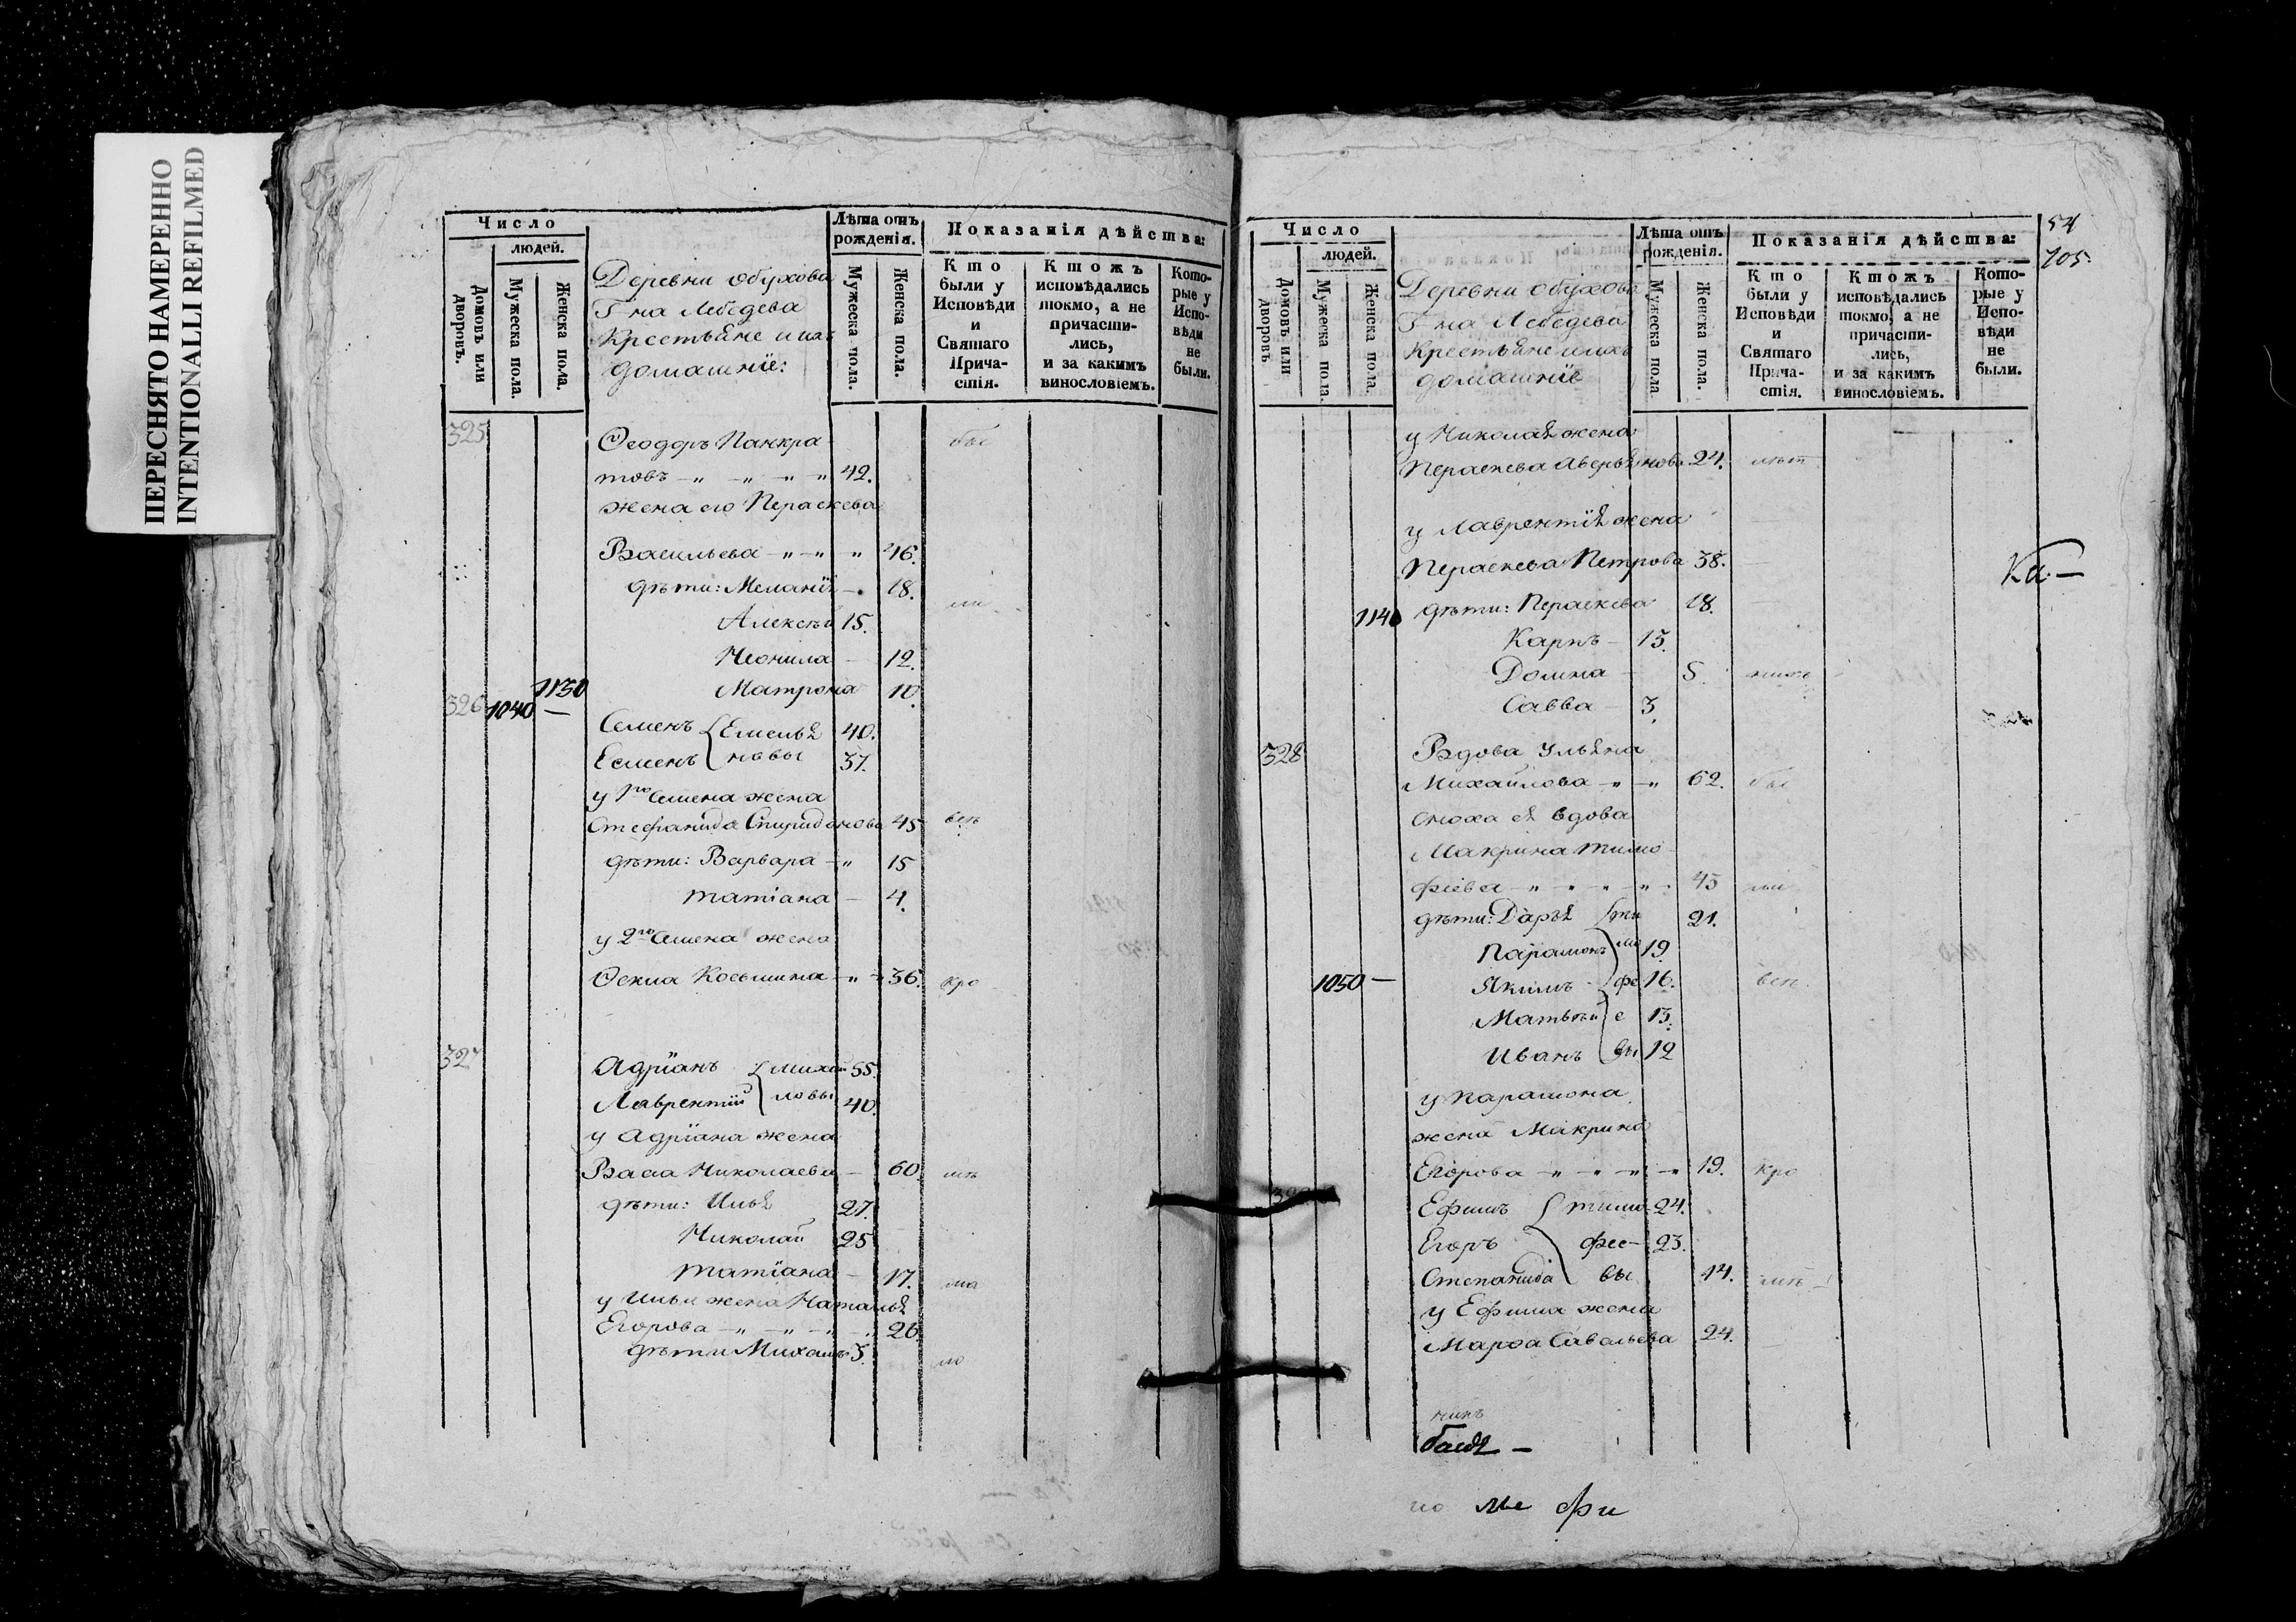 ПЕРЕСНЯТО НАМЕРЕННО
INTENTIONALLI REFILMED
Число
людей.
Домовъ или дворовъ.
Мужеска пола.
Женска пола.
Деревни Обухова
Г на Лебедева
Крестьяне и ихъ
домашнїе:
Лѣта отъ рожденія.
Мужеска пола.
Женска пола.
Показанія дѣйства:
Кто были у Исповѣди и Святаго Прича-стія.
Ктожъ исповѣдались токмо, а не причасти-лись, и за какимъ винословіемъ.
Кото-рые у Испо-вѣди не были.
325
Ѳеодоръ Панкра
товъ 42.
жена его Пераскева
Васильева 46.
дѣти: Меланїя 18.
Алексѣй 15.
Неонила 12.
1130
Матрона 10.
326 1040
Семенъ Емелья 40.
Семенъ новы 37.
у 1го Семена жена
Стефанида Спиридонова 45
дѣти: Варвара 15
татіана 4.
у 2го Семена жена
Ѳекла Косьмина 36.
327
Адрїанъ Михай 55.
Лаврентїй ловы 40.
у Адрїана жена
Васса Николаева 60
дѣти: Илья 27.
Николай 25
татїана 17.
у Ильи жена Наталья
Егорова 26
дѣти Михаилъ 3.
Число
людей.
Домовъ или дворовъ
Мужеска пола.
Женска пола.
Деревни Обухова
Г на Лебедева
Крестьяне и ихъ
домашнїе
Лѣта отъ рожденія.
Мужеска пола
Женска пола.
Показанія дѣйства:
Кто были у Исповѣди и Святаго Прича-стія.
Ктожъ исповѣдались токмо, а не причасти-лись, и за какимъ винословіемъ.
Кото-рые у Испо-вѣди не были.
54
105.
у Николая жена
Пераскева Аверьянова 24.
у Лаврентїя жена
Пераскева Петрова 38.
Ка
1140
дѣти: Пераскева 18.
Карпъ 15.
Домна
Савва 3.
328
Вдова Ульяна
Михайлова 62.
сноха ея вдова
Макрина тимо
фїева 45
дѣти: Дарья ти 21.
Парамонъ мо 19.
1050
Якимъ фе 16.
Матвѣй е 13.
Иванъ вы 12
у Парамона
жена Макрина
Егорова 19.
Ефимъ тимо 24.
Егоръ фее 23.
Степанида вы 14.
у Ефима жена
Марѳа Савельева 24.